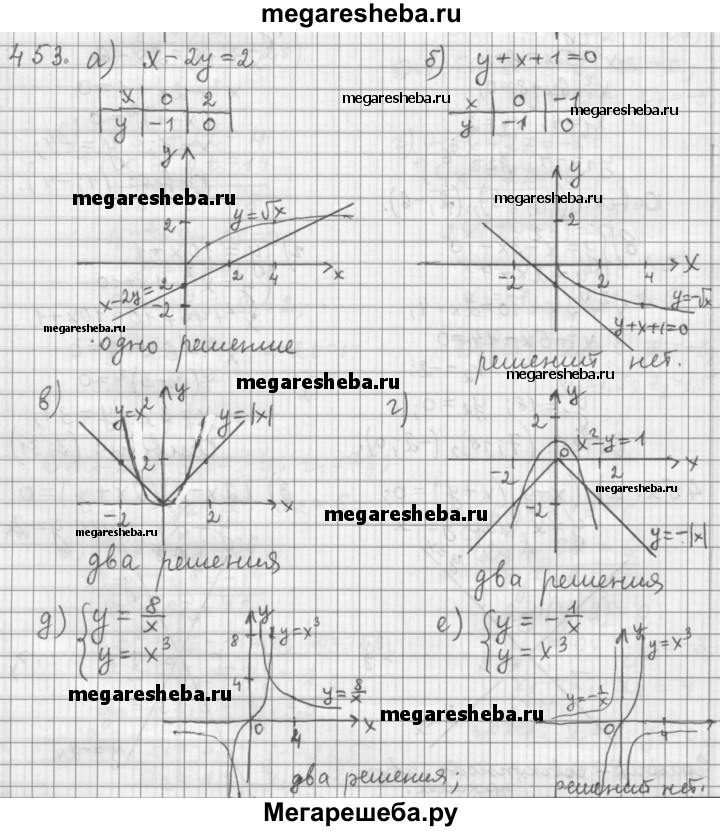 megaresheba.ru
453. а) x - 2y = 2
б) y + x + 1 = 0
x 0 2
y -1 0
megaresheba.ru
x 0 -1
y -1 0
megaresheba.ru
y
2
y = √x
2 4 x
x - 2y = 2
-2
megaresheba.ru
megaresheba.ru
одно решение
y
2
megaresheba.ru
-2 2 4 x
y = -√x
y + x + 1 = 0
решений нет.
megaresheba.ru
megaresheba.ru
в)
y = x²
y
y = |x|
2
-2 2 x
megaresheba.ru
два решения
г)
y
2
x² - y = 1
0
-2 2 x
-2
megaresheba.ru
megaresheba.ru
y = -|x|
два решения
д) { y = 8/x
y = x³
y
8
y = x³
4
y = 8/x
0 4 x
megaresheba.ru
два решения;
е) { y = -1/x
y = x³
y
y = x³
y = -1/x
0 4
megaresheba.ru
решений нет.
Мегарешеба.ру